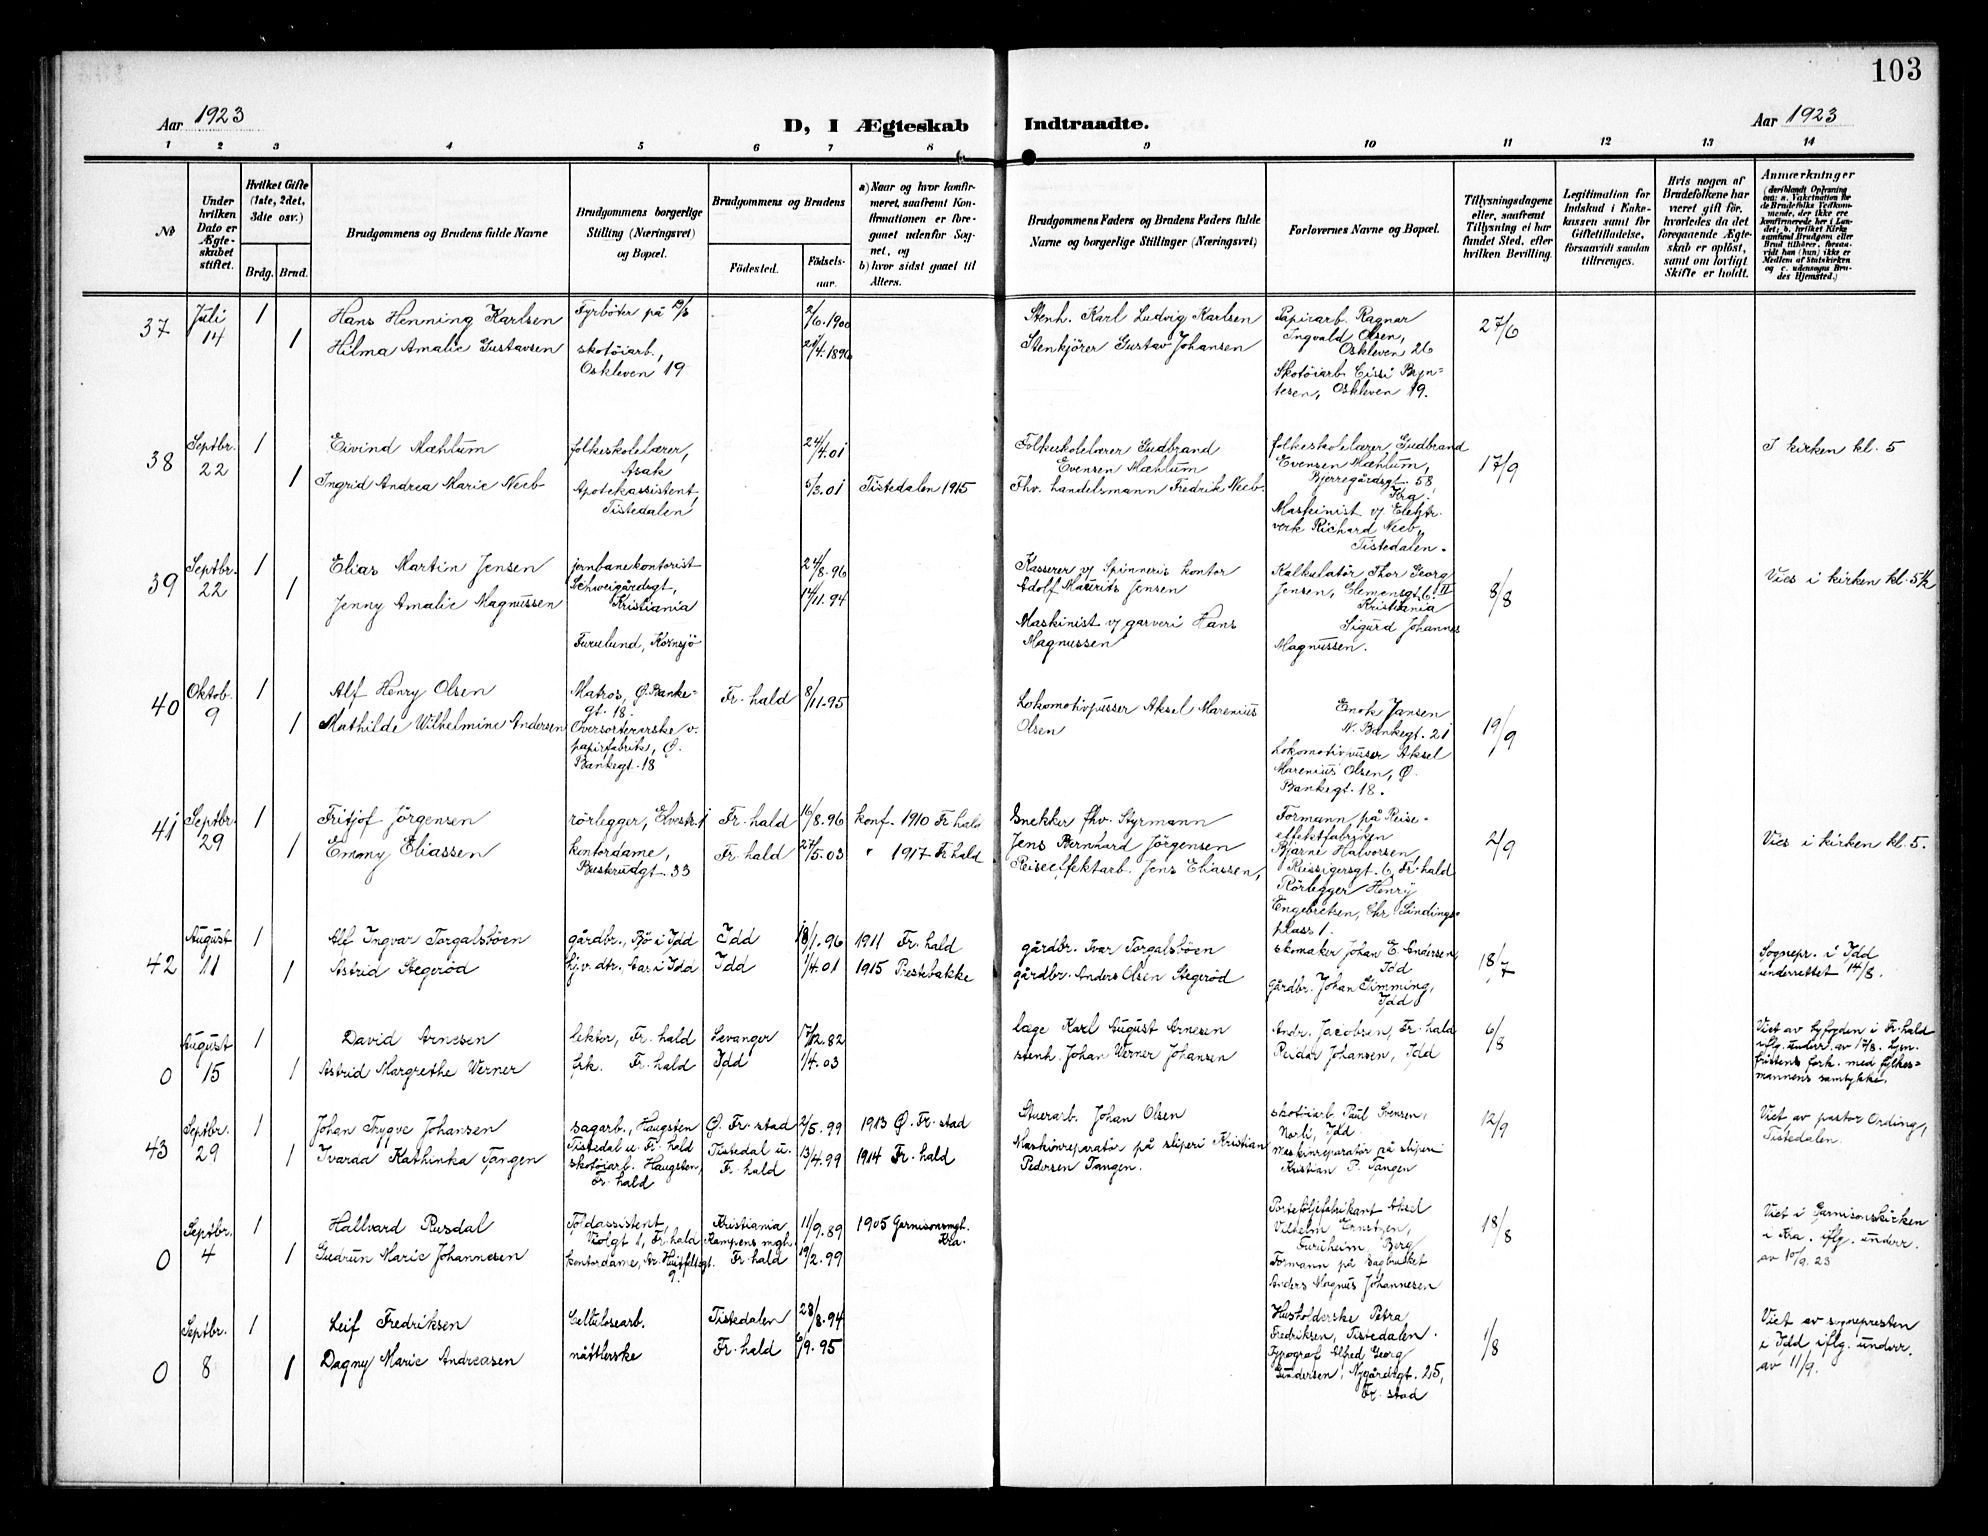 103
Aar 1923
D, I Ægteskab Indtraadte.
Aar 1923
1 2 3 4 5 6 7 8 9 10 11 12 13 14
No
Under hvilken Dato er Ægteskabet stiftet.
Hvilket Gifte (1ste, 2det, 3die osv.)
Brdg. Brud.
Brudgommens og Brudens fulde Navne
Brudgommens borgerlige Stilling (Næringsvei) og Bopæl.
Brudgommens og Brudens
Födested. Födselsaar.
a) Naar og hvor konfirmeret, saafremt Konfirmationen er foregaaet udenfor Sognet, og
b) hvor sidst gaaet til Alters.
Brudgommens Faders og Brudens Faders fulde Navne og borgerlige Stillinger (Næringsvei)
Forlovernes Navne og Bopæl.
Tillysningsdagene eller, saafremt Tillysning ei har fundet Sted, efter hvilken Bevilling.
Legitimation for Indskud i Enkekassen samt for Giftetilladelse, forsaavidt saadan tiltrænges.
Hvis nogen af Brudefolkene har været gift för, hvorledes da det foregaaende Ægteskab er oplöst, samt om lovligt Skifte er holdt.
Anmærkninger
(deriblandt Oplysning om: a. Vakcination for de Brudefolks Vedkommende, der ikke ere konfirmerede her i Landet; b. hvilket Kirkesamfund Brudgom eller Brud tilhörer, forsaavidt han (hun) ikke er Medlem af Statskirken og c. udensogns Brudes Hjemsted.)
37 Juli 14 1 Hans Henning Karlsen Fyrböter på D/S 2/6.1900 Stenh. Karl Ludvig Karlsen Papirarb. Ragnar Ingvald Olsen, Oskleven 26 27/6
1 Hilma Amalie Gustavsen skotöiarb., Oskleven 19 /4.1896 Stenkjörer Gustav Johansen Skotöiarb. Cissi Bryntesen, Oskleven 19.
38 Septbr. 22 1 Eivind Mæhlum folkeskolelærer, Asak 24/4.01 Folkeskolelærer Gudbrand Evensen Mæhlum folkeskolelærer Gudbrand Evensen Mæhlum, Bjerregårdsgt. 58, Kra. 17/9 I kirken kl. 5
1 Ingrid Andrea Marie Neeb Apotekassistent, Tistedalen 6/3.01 Tistedalen 1915 Fhv. handelsmann Fredrik Neeb. Maskinist v/ Elektr. verk Richard Neeb, Tistedalen.
39 Septbr. 22 1 Elias Martin Jensen jernbanekontorist Schweigårdsgt, Kristiania 24/8.96 Kasserer v/ Spinneris kontor Adolf Mauritz Jensen Kalkulatör Thor Georg Jensen, Clemensgt. 6 II Kristiania 8/8 Vies i kirken kl. 5 1/2
1 Jenny Amalie Magnussen Furulund, Kornsjö 17/11.94 Maskinist v/ garveri Hans Magnussen Sigurd Johannes Magnussen.
40 Oktob. 9 1 Alf Henry Olsen Matros, Ø. Bankegt. 18. Fr.hald 8/11.95 Lokomotivpusser Aksel Marenius Olsen Enok Jansen N. Bankegt. 21 19/9
1 Mathilde Wilhelmine Andersen Oversorterarske v. papirfabrik, Ø. Bankegt. 18 Lokomotivpusser Aksel Marenius Olsen, Ø. Bankegt. 18.
41 Septbr. 29 1 Fritjof Jörgensen rörlegger, Elvestr. 1 Fr.hald 16/8.96 konf. 1910 Fr.hald Snekker fhv. Styrmann Jens Bernhard Jörgensen Formann på Reiseeffektfabriken Bjarne Halvorsen, Reissigersgt. 6, Fr.hald 2/9 Vies i kirken kl. 5.
1 Emmy Eliassen kontordame, Buskrudgt. 33 Fr.hald 27/5.03 " 1917 Fr.hald Reiseeffektarb. Jens Eliassen, Rörlegger Henry Engebretsen, Chr. Sindings plass 1.
42 August 11 1 Alf Ingvar Torgalsbøen gårdbr., Bö i Idd Idd 18/1.96 1911 Fr.hald gårdbr. Ivar Torgalsbøen skomaker Johan E. Andersen, Idd 18/7 Sognepr. i Idd underrettet 14/8.
1 Astrid Stegerød hj.v. dtr. Bar i Idd Idd 1/4.01 1915 Prestebakke gårdbr. Anders Olsen Stegerød Gårdbr. Johan Simming, Idd
0 August 15 1 David Arnesen lektor, Fr.hald Levanger 17/12.82 læge Karl August Arnesen Andr. Jacobsen, Fr.hald 6/8 Viet av byfogden i Fr.hald iflg. underr. av 17/8. Lysn. fristens fork. med fylkesmannens samtykke.
1 Astrid Margrethe Werner frk. Fr.hald Idd 1/4.03 stenh. Johan Werner Johansen Peider Johansen, Idd
43 Septbr. 29 1 Johan Trygve Johansen sagarb., Haugsten Tistedal u. Fr.hald Ø. Fr.stad 2/5.99 1913 Ø. Fr.stad Stuerarb. Johan Olsen skotöiarb. Paul Svensen, Norli, Idd 12/9 Viet av pastor Ording, Tistedalen.
1 Ivaraa Kathinka Tangen skotöiarb. Haugsten, Fr.hald Tistedal u. Fr.hald 13/4.99 1914 Fr.hald Maskinreparatör på sliperi Kristian Pedersen Tangen. maskinreparatör på sliperi Kristian P. Tangen
0 Septbr. 4 1 Hallvard Rusdal Toldassistent, Violgt 1, Fr.hald Kristiania Kampens mgh. 11/9.89 1905 Garnisonsmgt. Kra. Porteföljefabrikant Aksel Vilhelm Ernstzen, Furuheim, Berg 18/8 Viet i Garnisonskirken i Kra. iflg. underr. av 10/9.23
1 Gudrun Marie Johannesen kontordame, Ar. Huitfeldsgt. 9. Fr.hald 19/2.99 Formann på Sagbruket Anders Magnus Johannesen
0 Septbr. 8 1 Leif Fredriksen Cellulosearb. Tistedalen 28/8.94 Husholderske Petra Fredriksen, Tistedalen. 1/8 Viet av sognepresten i Idd iflg. underr. av 11/9.
1 Dagny Marie Andreasen nåtlerske Fr.hald 6/9.95 Typograf Alfred Georg Gundersen, Nygårdsgt. 25, Fr.stad